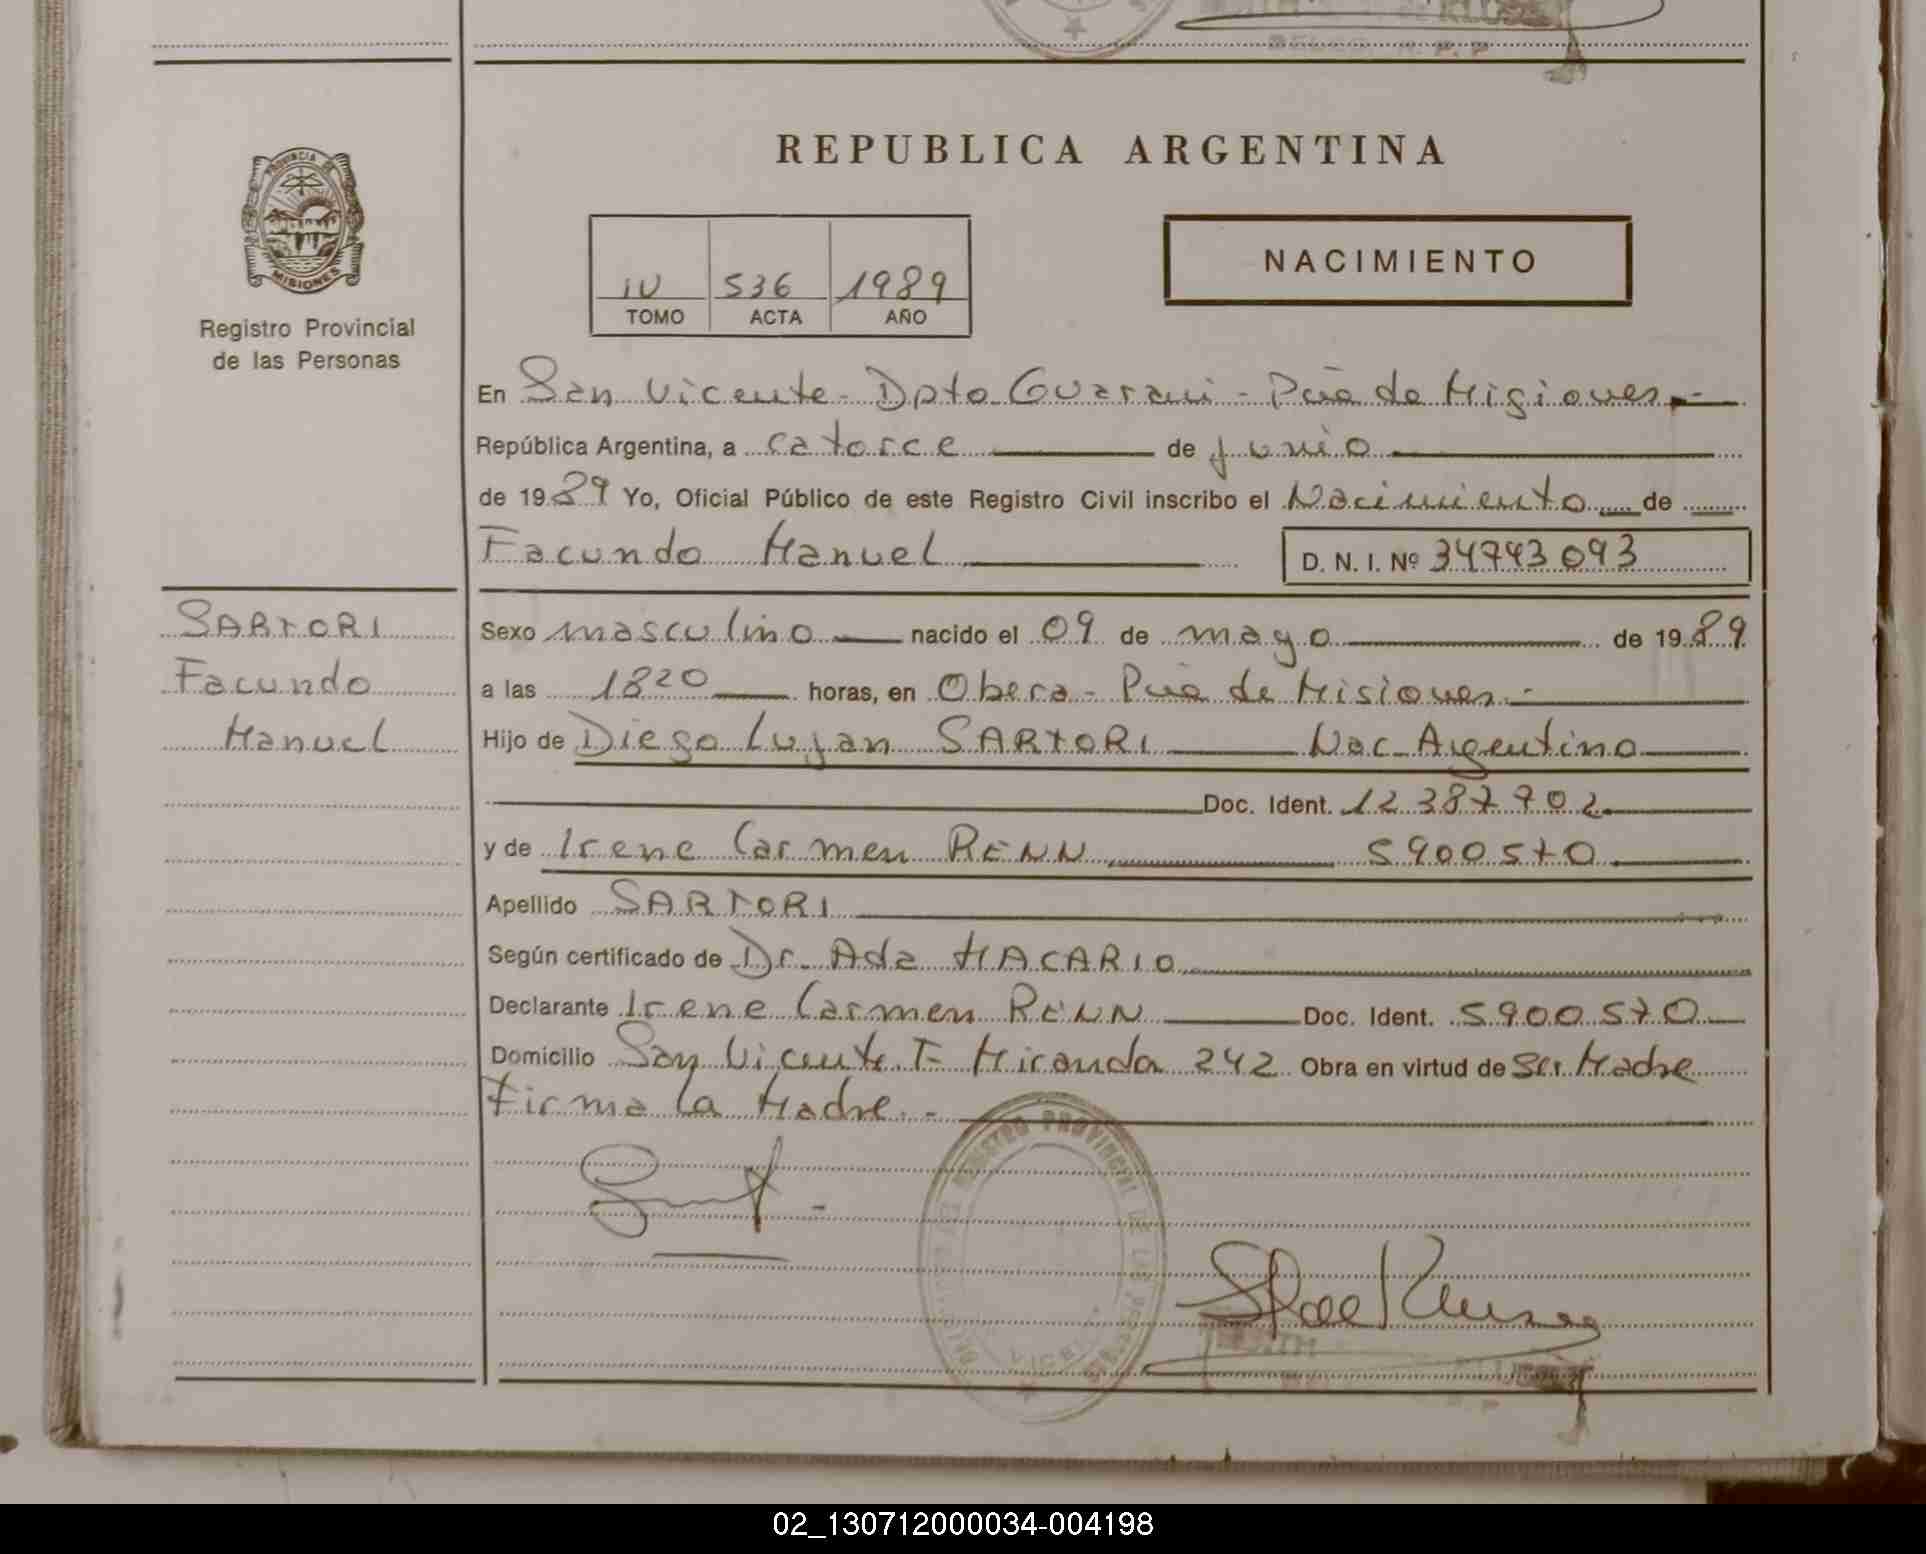 REPUBLICA ARGENTINA
PROVINCIA DE
MISIONES
Registro Provincial
de las Personas
IV 536 1989
TOMO ACTA AÑO
NACIMIENTO
En San Vicente - Dpto Guarani - Pcia de Misiones.-
República Argentina, a catorce de junio
de 1989 Yo, Oficial Público de este Registro Civil inscribo el Nacimiento de
Facundo Manuel D. N. I. Nº 34743093
SARTORI
Facundo
Manuel
Sexo masculino nacido el 09 de mayo de 1989
a las 1820 horas, en Obera - Pcia de Misiones.-
Hijo de Diego Lujan SARTORI Nac. Argentino
Doc. Ident. 12387702
y de Irene Carmen RENN 5900570
Apellido SARTORI
Según certificado de Dr. Ada MACARIO
Declarante Irene Carmen RENN Doc. Ident. 5900570
Domicilio San Vicente. F. Miranda 242 Obra en virtud de Ser Madre
Firma la Madre.-
REGISTRO PROVINCIAL DE LAS
02_130712000034-004198